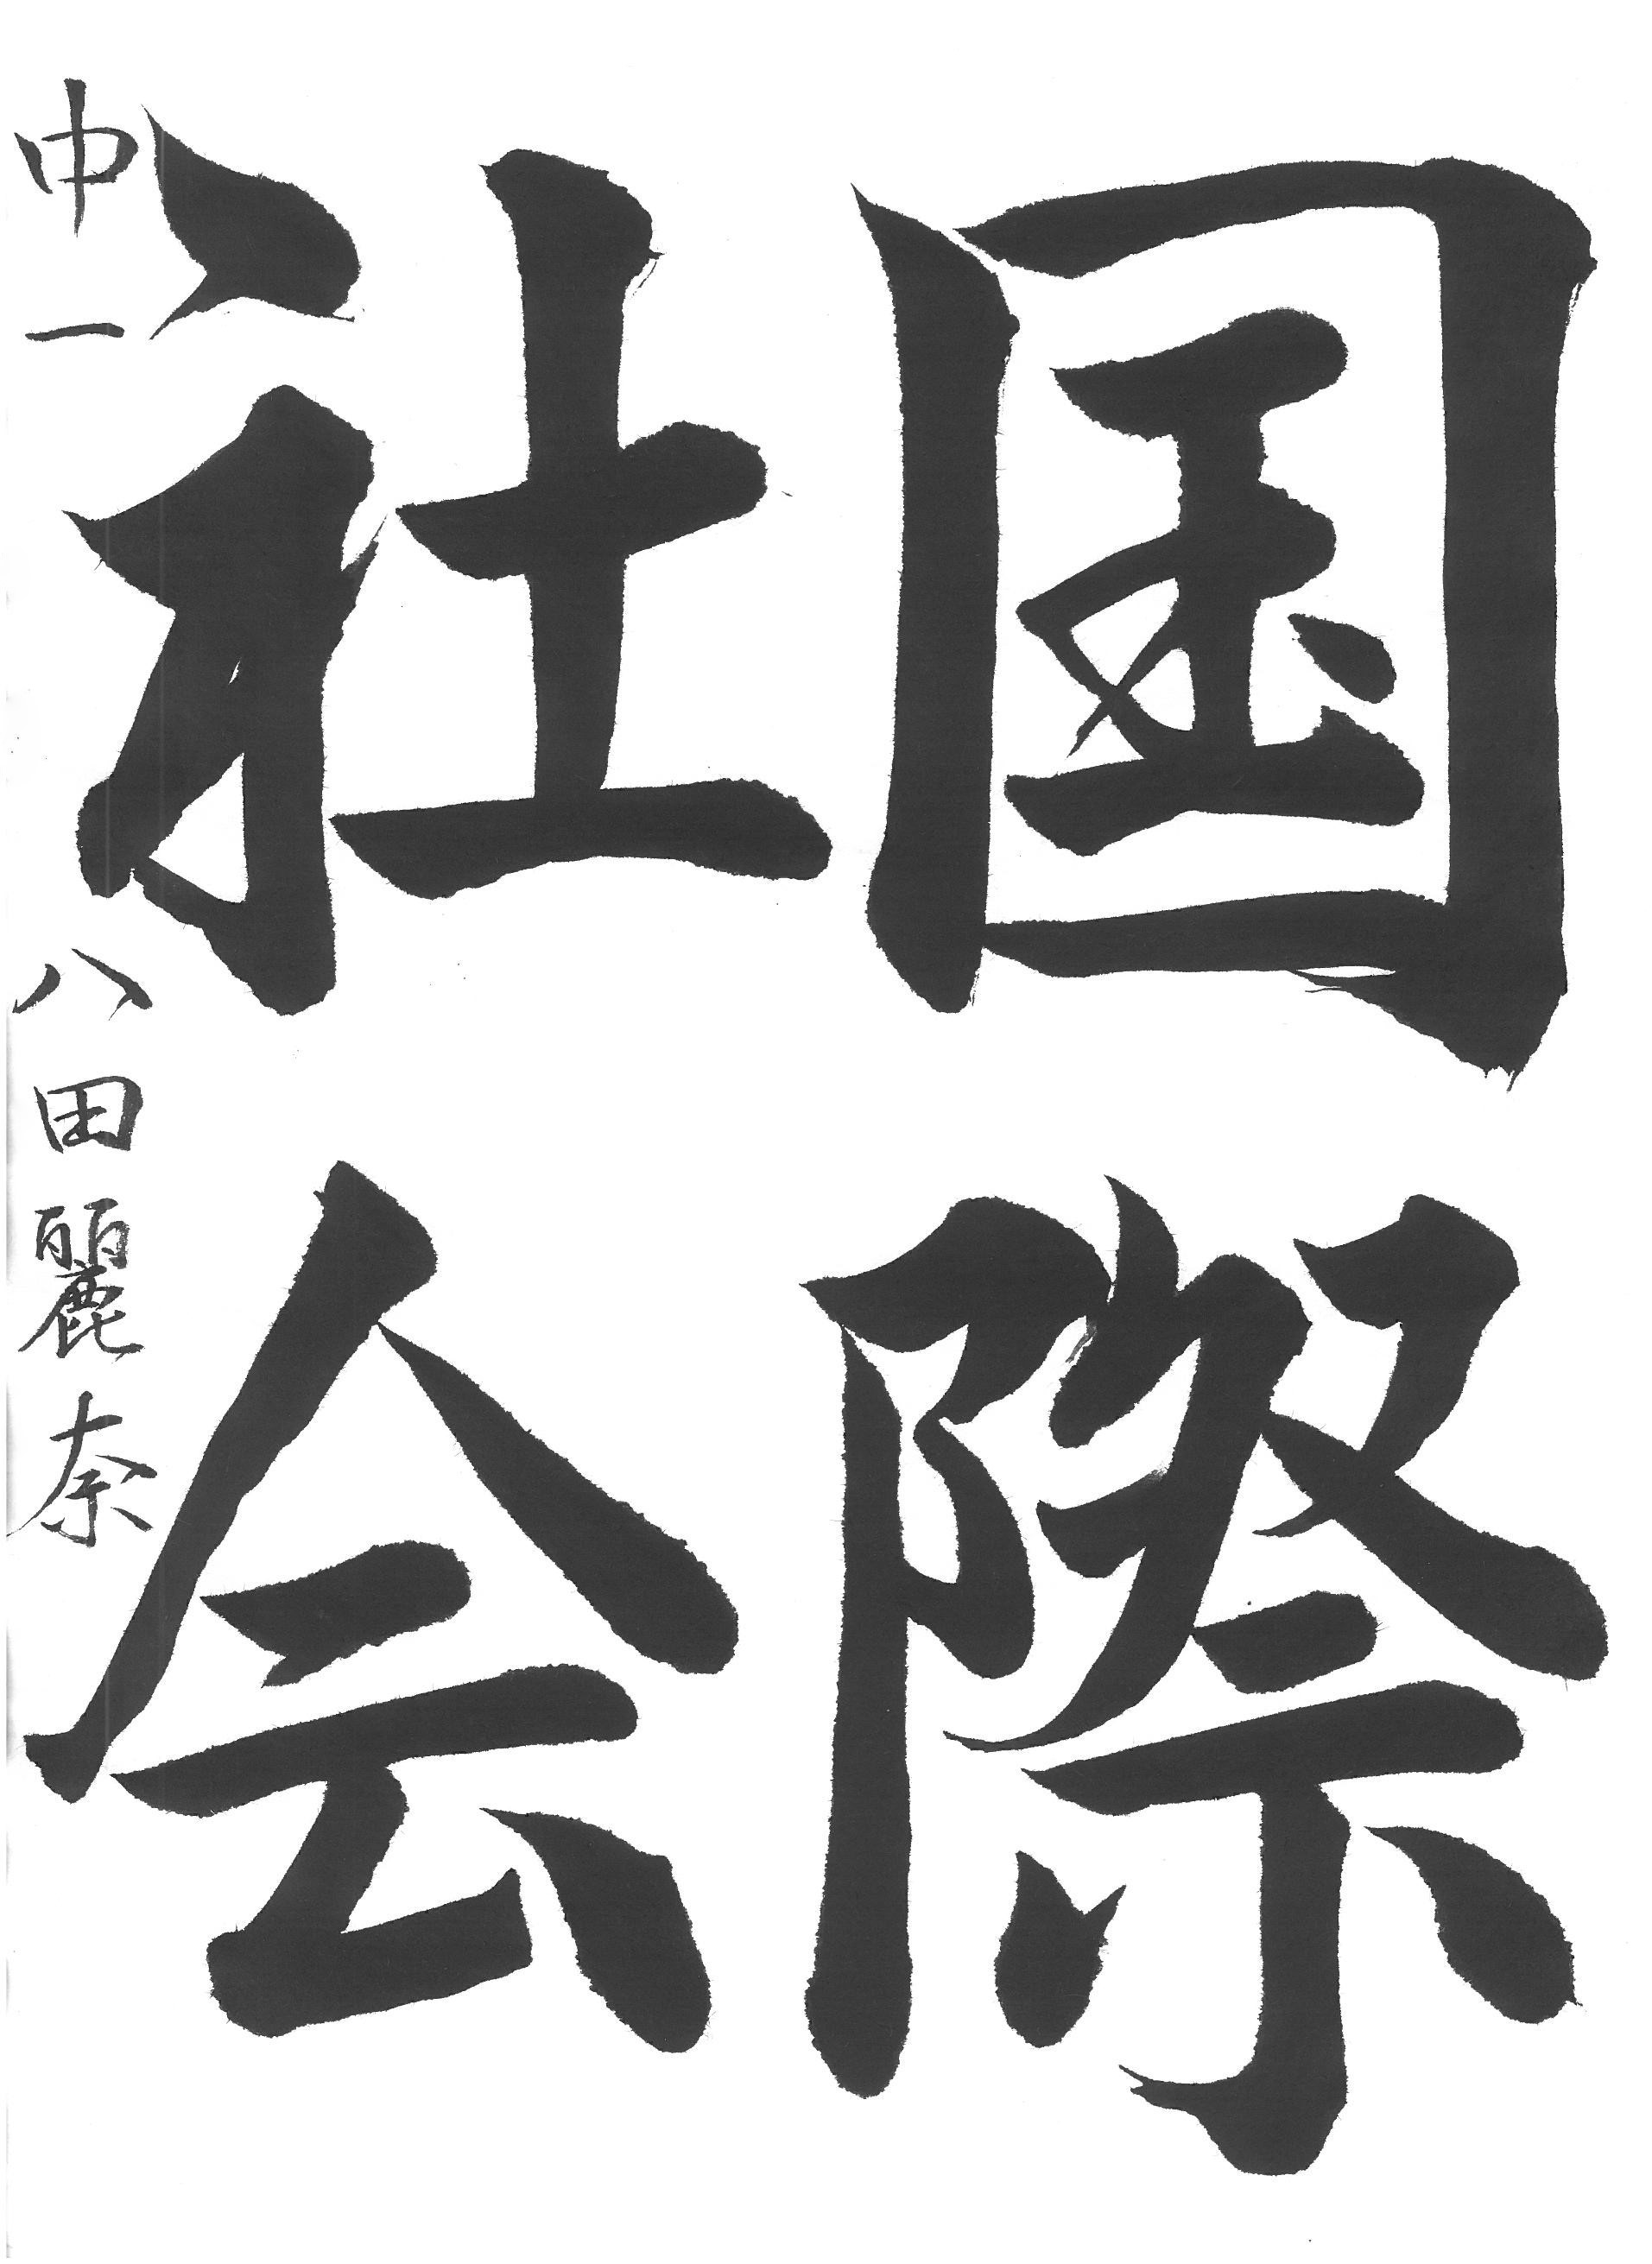 国際
社会
中一 八田麗奈